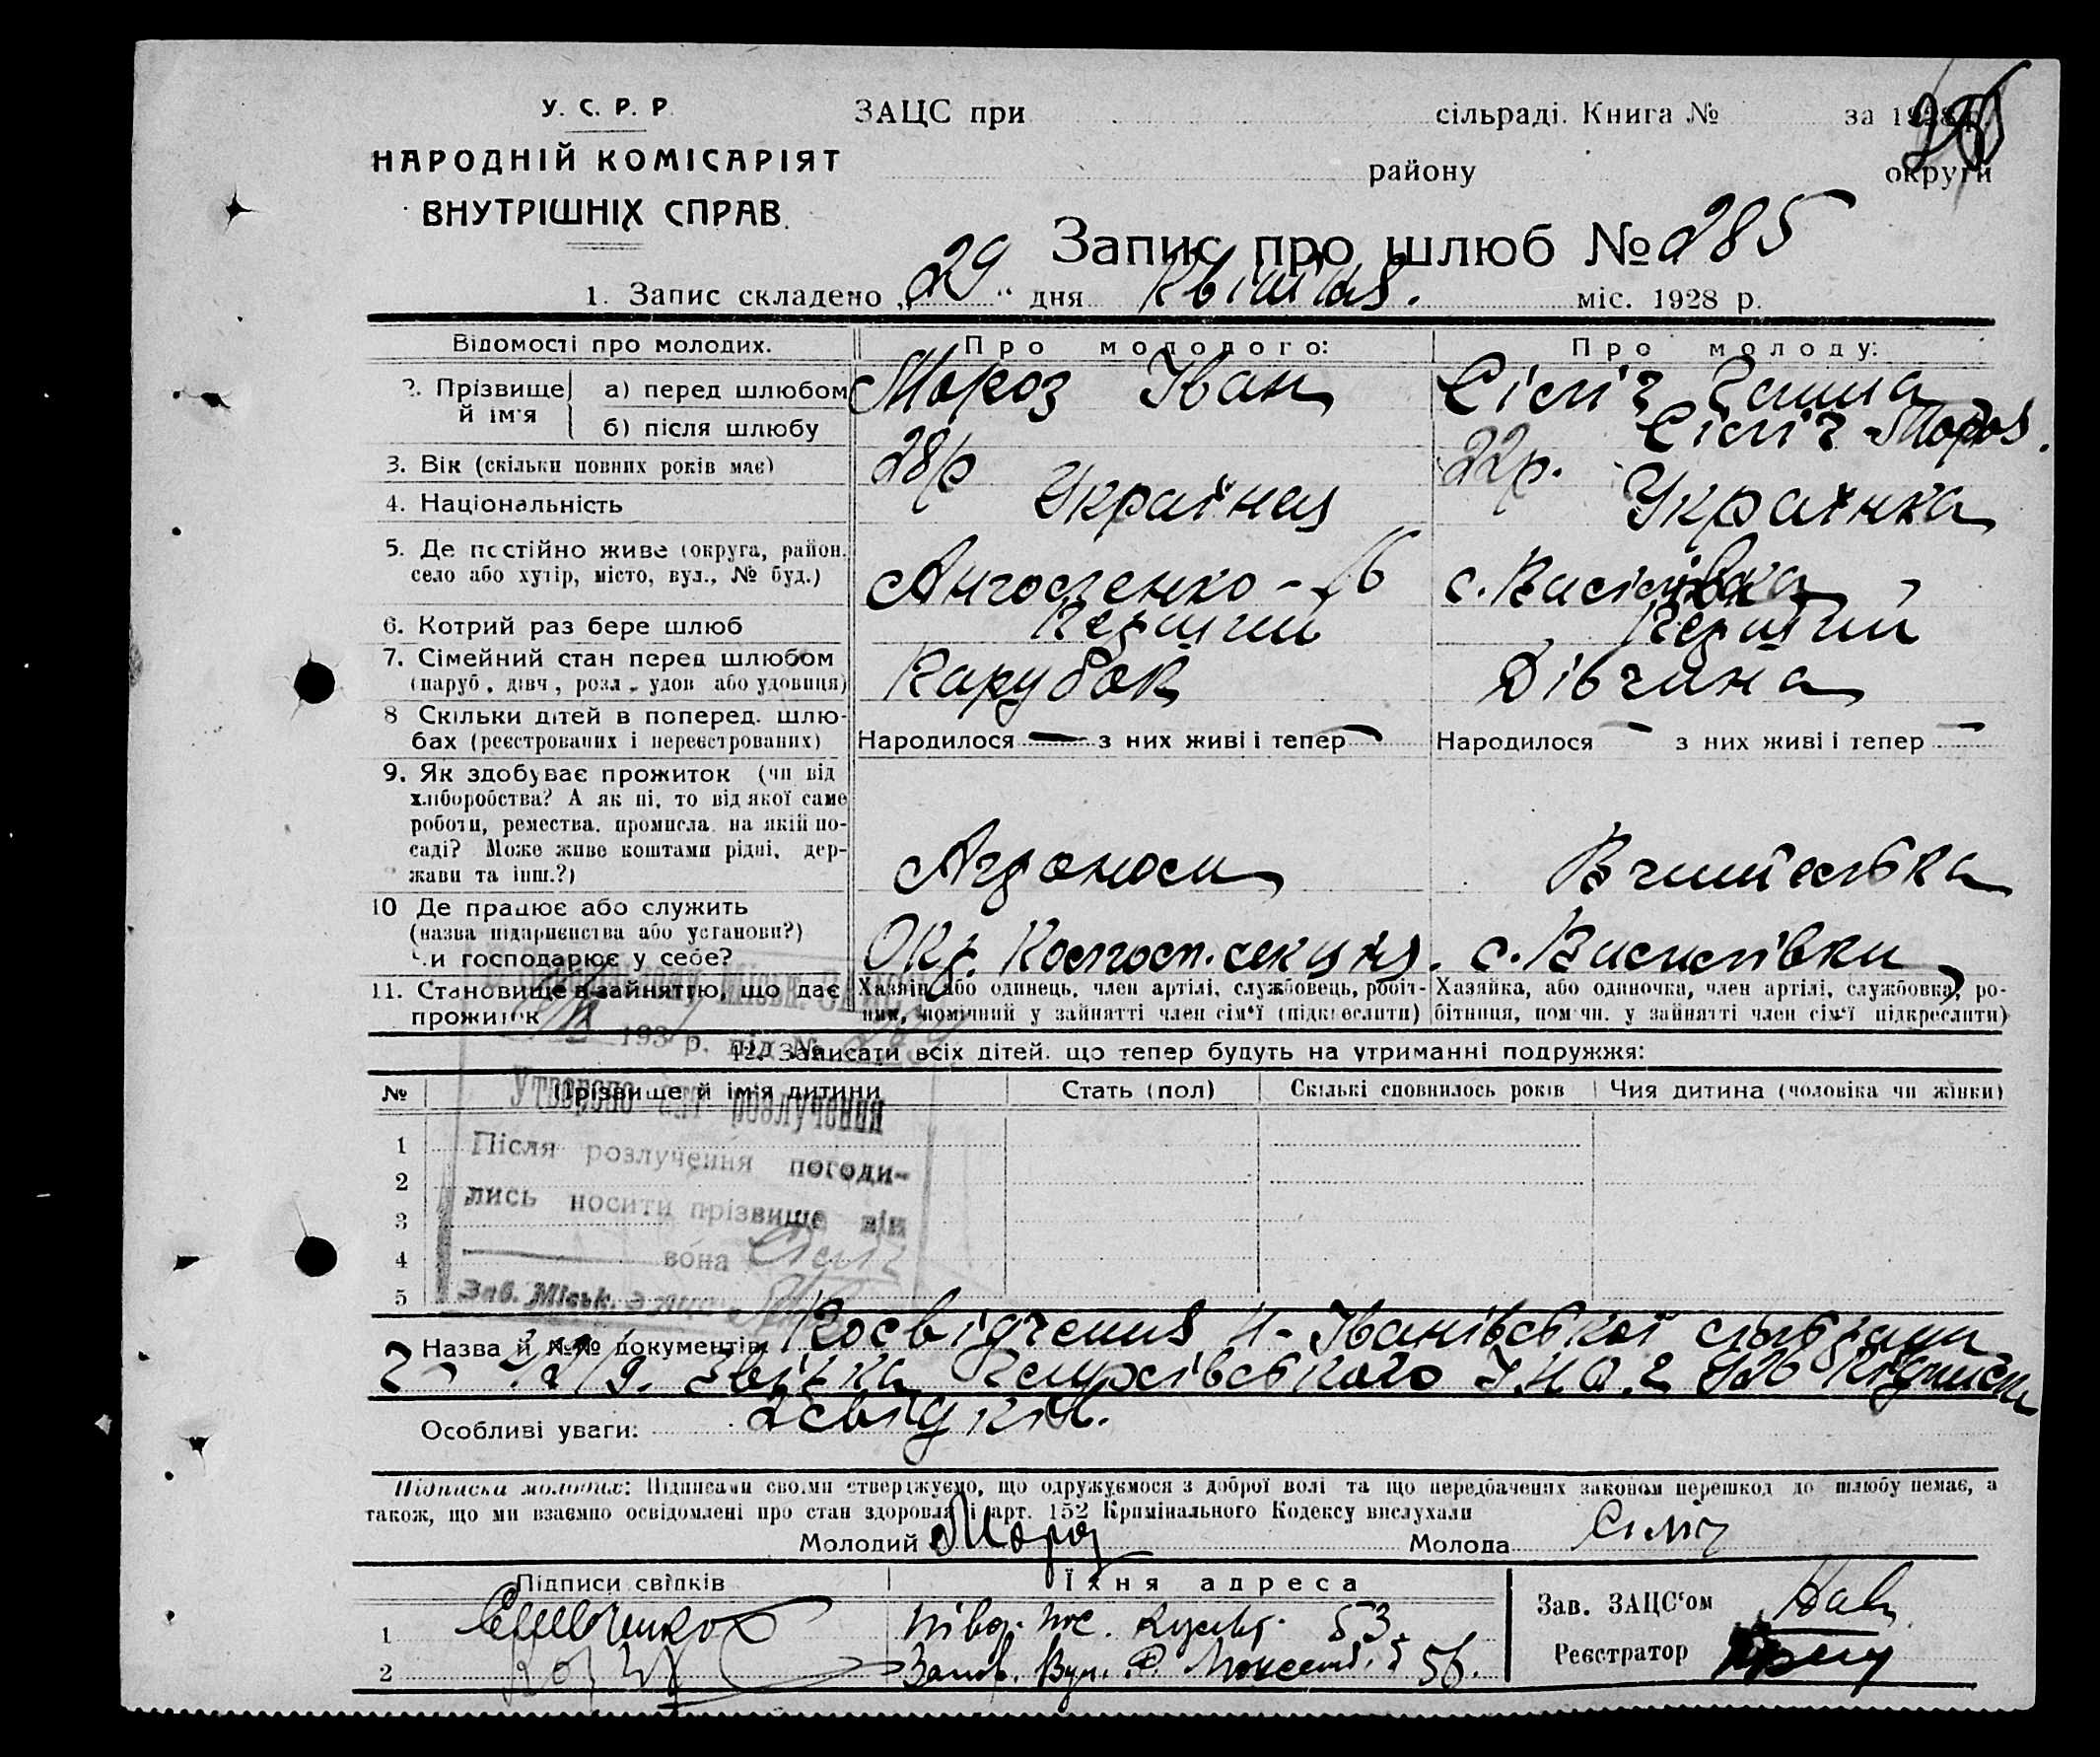 У. С. Р. Р.
НАРОДНІЙ КОМІСАРІЯТ
ВНУТРІШНІХ СПРАВ.
ЗАЦС при сільраді. Книга № за 1928 р.
району округи
Запис про шлюб № 285
1. Запис складено „29“ дня Квітня. міс. 1928 р.
Відомості про молодих. Про молодого: Про молоду:
2. Прізвище й ім'я
а) перед шлюбом Мороз Іван Сісліч Ганна
б) після шлюбу Сісліч-Мороз.
3. Вік (скільки повних років має) 28р 22р.
4. Національність Українец Українка
5. Де постійно живе (округа, район,
село або хутір, місто, вул., № буд.) с. Василівка
6. Котрий раз бере шлюб Перший Перший
7. Сімейний стан перед шлюбом
(паруб., дівч., розл., удов. або удовиця) Парубок Дівчина
8 Скільки дітей в поперед. шлю-
бах (реєстрованих і нереєстрованих) Народилося — з них живі і тепер — Народилося — з них живі і тепер —
9. Як здобуває прожиток (чи від
хліборобства? А як ні, то від якої саме
роботи, ремества, промисла, на якій по-
саді? Може живе коштами рідні, дер-
жави та інш.?) Агроном Вчителька
10 Де працює або служить
(назва підприємства або установи?)
чи господарює у себе? Окр. Колгосп. секція. с. Василівки
11. Становище в зайняттю, що дає
прожиток
Хазяїн або одинець, член артілі, службовець, робіт-
ник, помічний у зайнятті член сім'ї (підкреслити)
Хазяйка, або одиночка, член артілі, службовка, ро-
бітниця, помічн. у зайнятті член сім'ї підкреслити)
12. Записати всіх дітей, що тепер будуть на утриманні подружжя:
№ Прізвище й ім'я дитини Стать (пол) Скількі сповнилось років Чия дитина (чоловіка чи жінки)
1
2
3
4
5
193 р. під №
Утворено акт розлучення
Після розлучення погоди-
лись носити прізвище він
— вона Сісліч
Зав. Міськ. Зацс
Назва й №№ документів: Посвідчення Н-Іванівської сільради
Особливі уваги: 2 свідків.
Підписи молодих: Підписами своїми стверджуємо, що одружуємося з доброї волі та що передбачених законом перешкод до шлюбу немає, а
також, що ми взаємно освідомлені про стан здоровля і арт. 152 Кримінального Кодексу вислухали
Молодий Мороз Молода Сісліч
Підписи свідків Їхня адреса
1 53.
2 56.
Зав. ЗАЦС'ом
Реєстратор